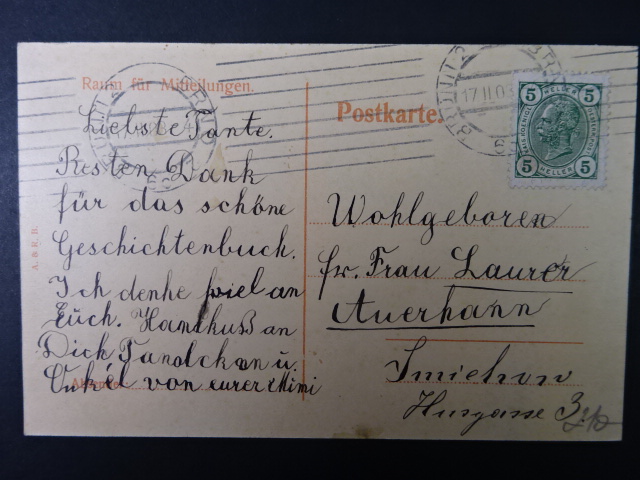 Raum für Mitteilungen.
Liebste Tante.
Besten Dank
für das schöne
Geschichtenbuch.
Ich denke viel an
Euch. Handkuß an
Dich Tantchen u.
Onkel von eurer Mimi
A. & E. B.
Postkarte.
BRÜNN 2
BRNO
17 II 0
5 HELLER 5
5 HELLER 5
Wohlgeboren
fr. Frau Laurer
Auerhann
Smichow
Husgasse 3.